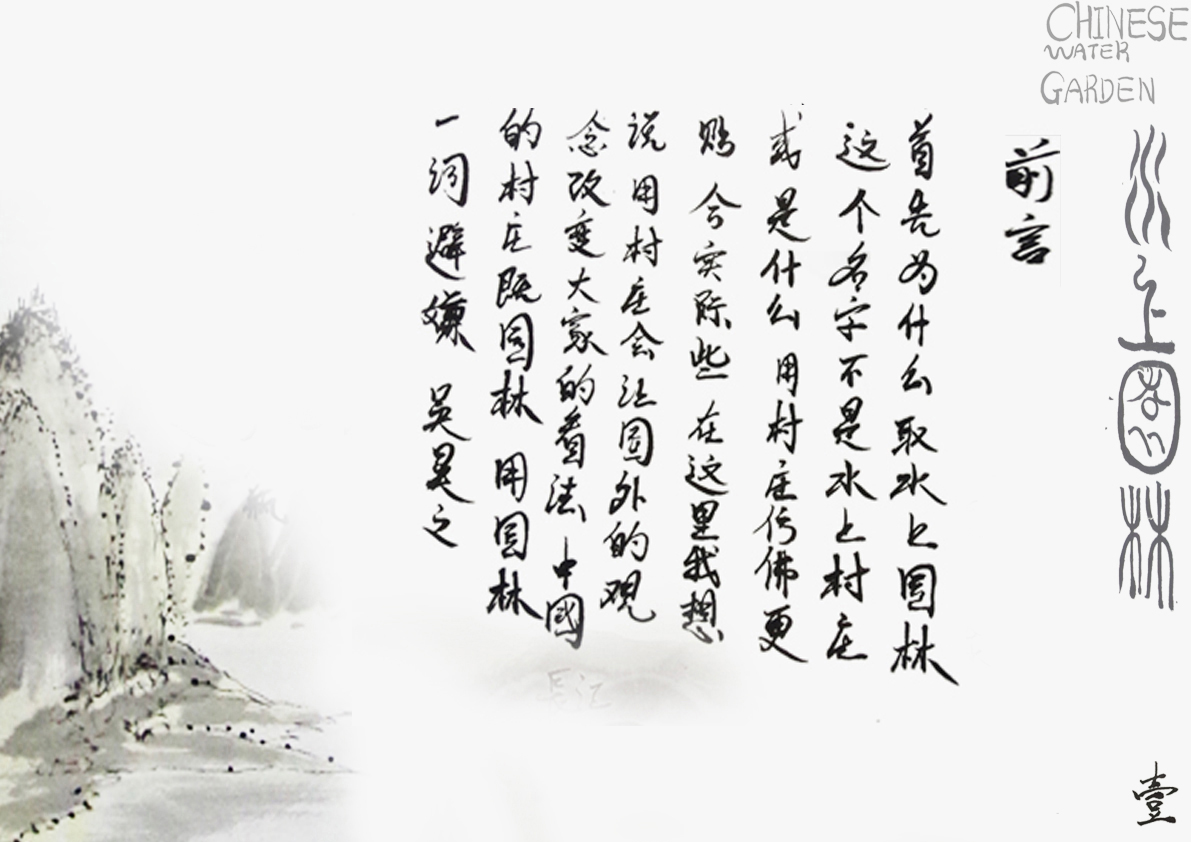 CHINESE
WATER
GARDEN
水上園林
前言
首先为什么取水上园林
这个名字不是水上村庄
或是什么 用村庄仿佛更
贴合实际些 在这里我想
说用村庄会让国外的观
念改变大家的看法 中國
的村庄既园林 用园林
一词避嫌 吴昊之
壹